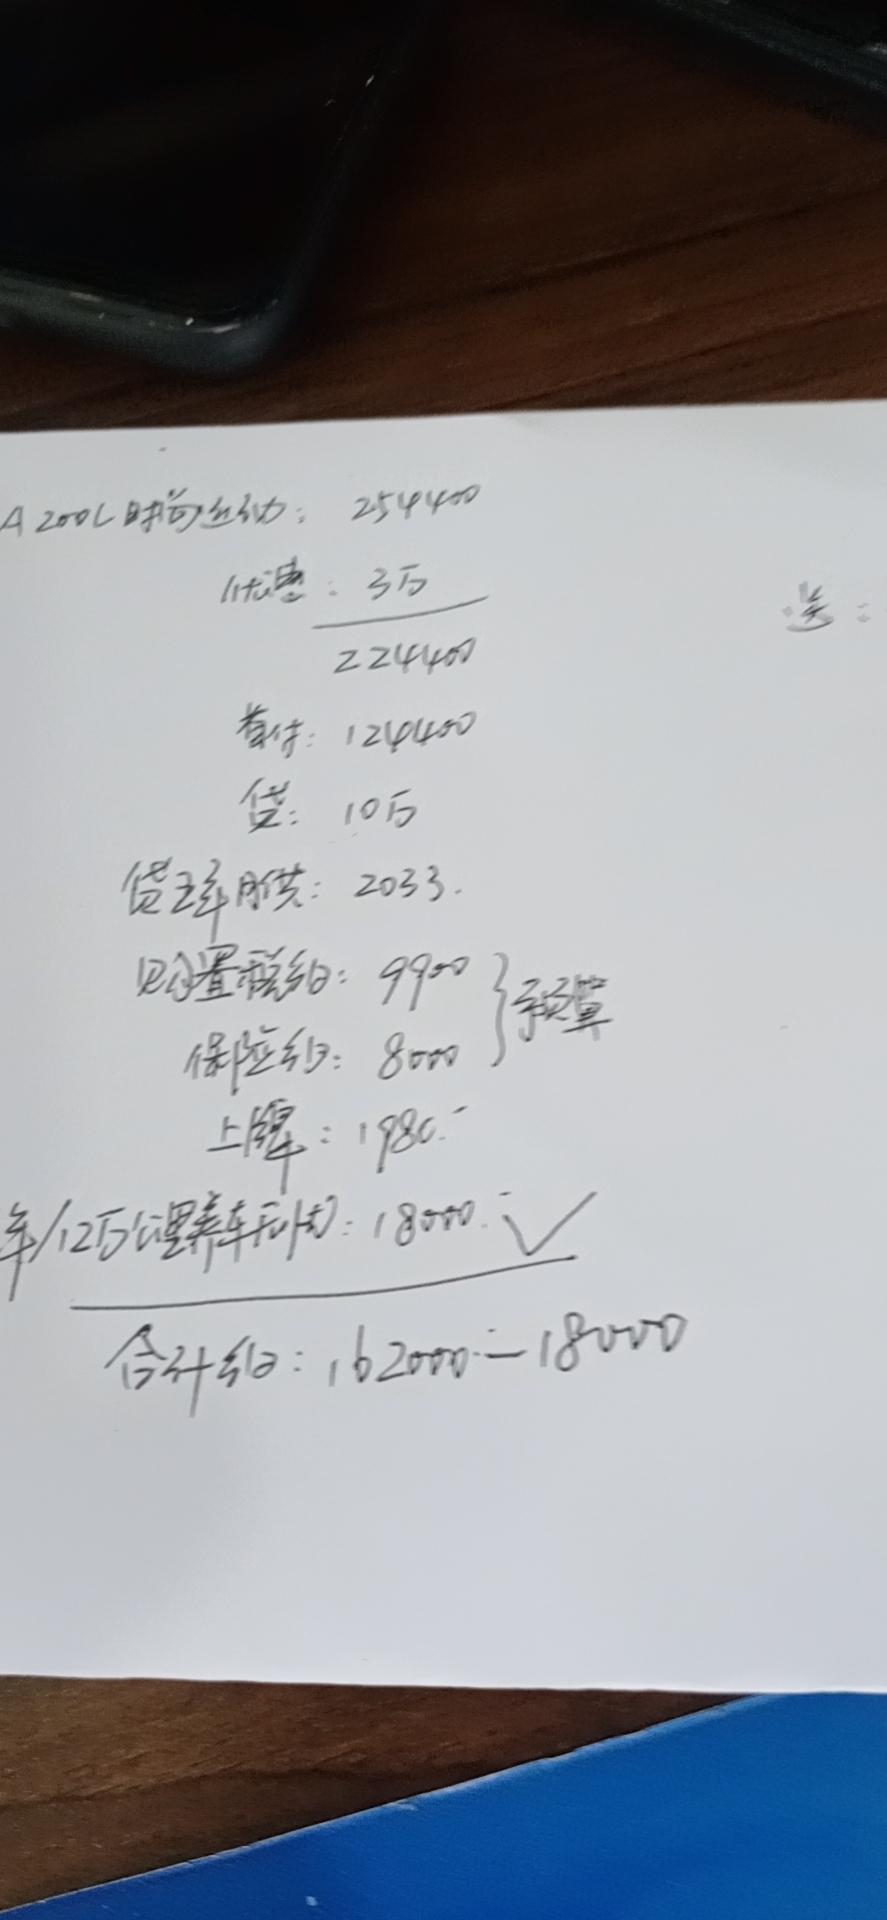 A200L时尚运动: 254400
优惠: 3万
送:
224400
首付: 124400
贷: 10万
贷五年月供: 2033.
购置税约: 9900
预算
保险约: 8000
上牌: 1980.-
年/12万公里养车无忧: 18000.- ✓
合计约: 162000.- - 18000